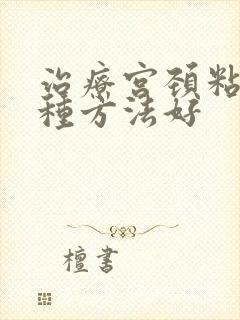 治療宮頚粘
種方法好
檀書